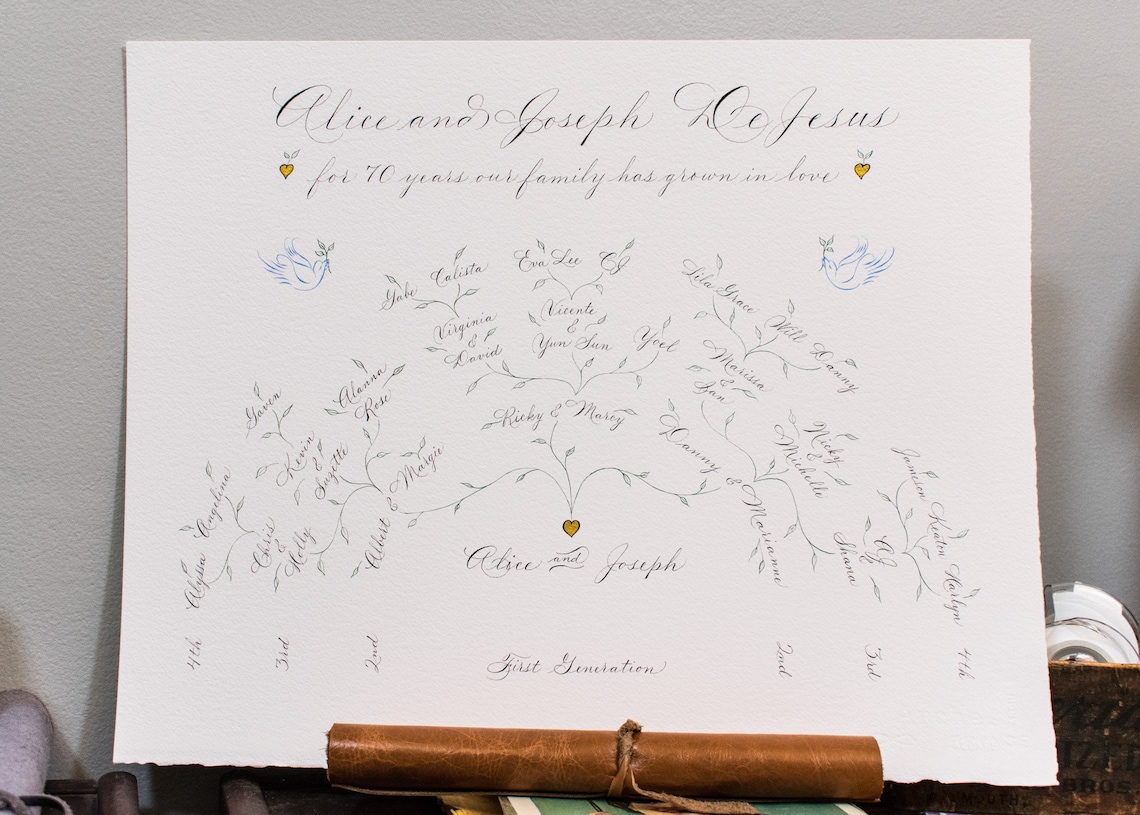 Alice and Joseph De Jesus
for 70 years our family has grown in love
Gabe
Calista
Eva Lee
CJ
Lila Grace
Will
Danny
Virginia
&
David
Vicente
&
Yun Sun
Yoel
Marissa
&
Ian
Gaven
Alanna
Rose
Ricky & Marcy
Kevin
&
Suzette
Nicky
&
Michelle
Alyssa
Angelina
Chris
&
Holly
Albert & Margie
Danny & Marianne
Shana
&
AJ
Jameson
Keaton
Harlyn
Alice and Joseph
4th
3rd
2nd
First Generation
2nd
3rd
4th
BROS.